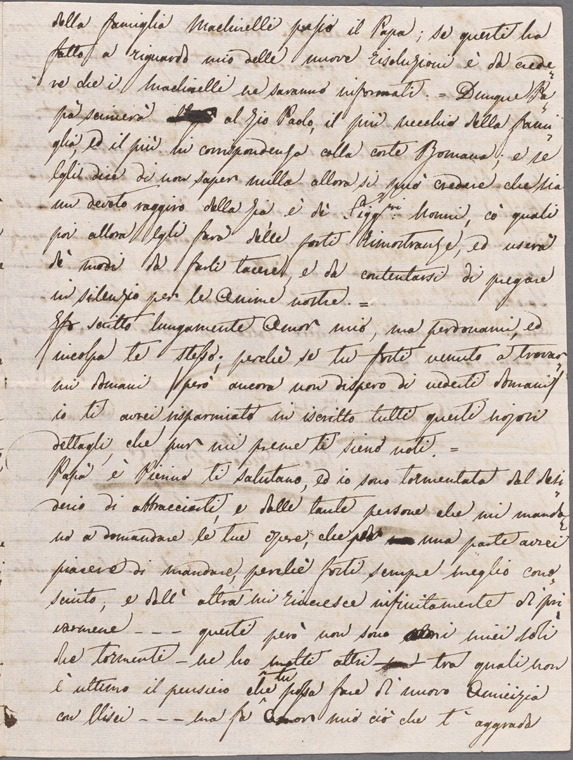 della famiglia Machirelli presso il Papa; se questi ha
fatto a riguardo mio delle nuove risoluzioni è da crede=
re che i Machirelli ne saranno informati. = Dunque Pa=
pà scriverà al Zio Paolo, il più vecchio della fami=
glia, ed il più in corrispondenza colla corte Romana; e se
Egli dirà di non saper nulla allora si può credere che sia
un devoto raggiro della Zia e di Sigg.ri Nonni, co' quali
poi allora Egli farà delle forti Rimostranze, ed userà
de' modi da farli tacere, e da contentarsi di pregare
in silenzio per le Anime nostre. =
Ho scritto lungamente Amor mio, ma perdonami, ed
incolpa te stesso; perchè se tu fossi venuto a trovar=
mi domani (però ancora non dispero di vederti domani)
io ti avrei risparmiato in iscritto tutti questi nojosi
dettagli, che pur mi preme ti sieno noti. =
Papà e Pierino ti salutano, ed io sono tormentata dal desi=
derio di abbracciarti, e dalle tante persone che mi manda=
no a domandare le tue opere, che una parte avrei
piacere di mandare, perchè fosti sempre meglio cono=
sciuto, e dall' altra mi rincresce infinitamente di pri=
varmene - - - questi però non sono miei soli
che tormenti - ne ho molti altri tra quali non
è ultimo il pensiero che tu possa fare di nuovo Amicizia
con - - - ma fà Amor mio ciò che t' aggrada